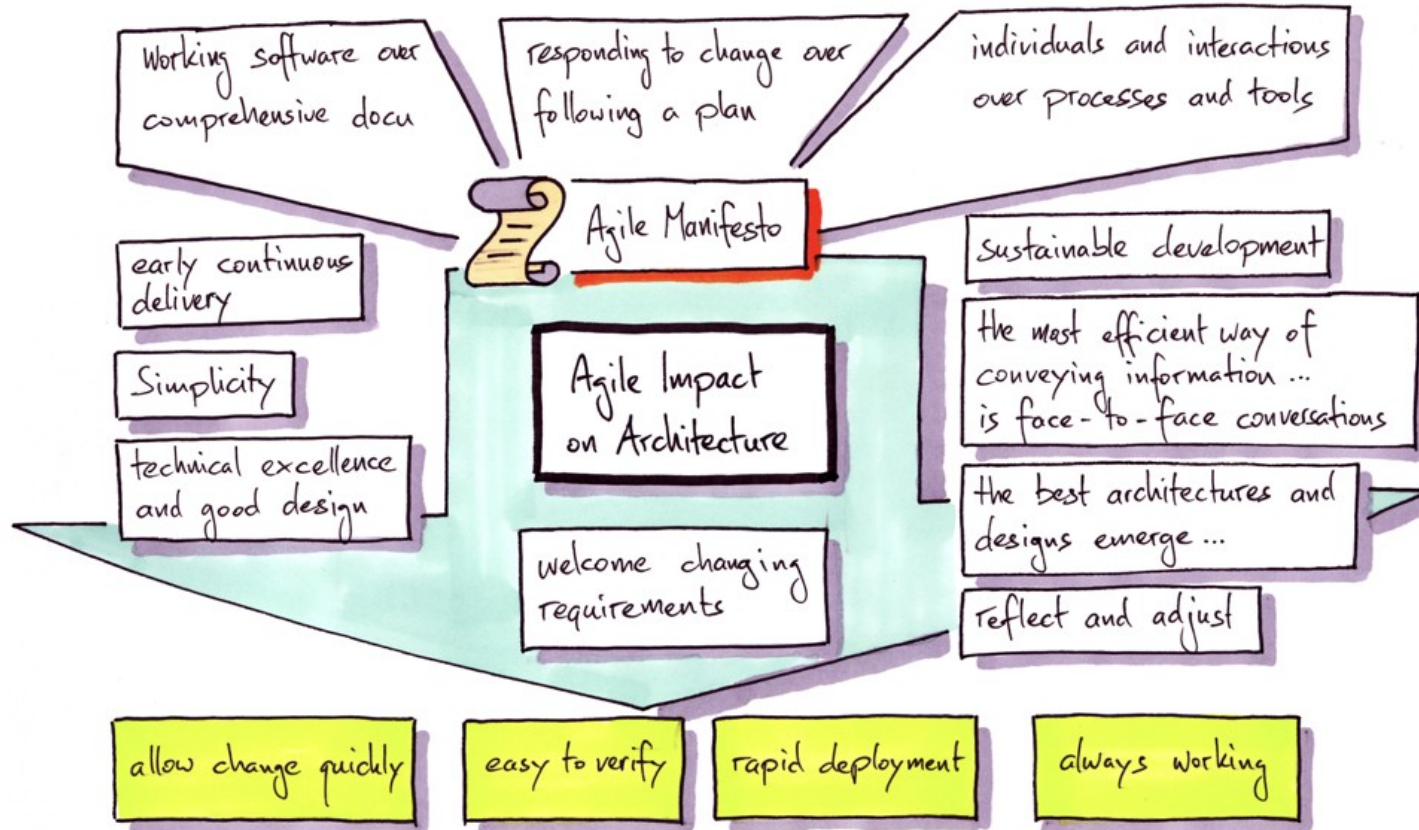 Working software over
comprehensive docu
responding to change over
following a plan
individuals and interactions
over processes and tools
Agile Manifesto
early continuous
delivery
Simplicity
technical excellence
and good design
Agile Impact
on Architecture
welcome changing
requirements
sustainable development
the most efficient way of
conveying information ...
is face-to-face conversations
the best architectures and
designs emerge ...
reflect and adjust
allow change quickly
easy to verify
rapid deployment
always working